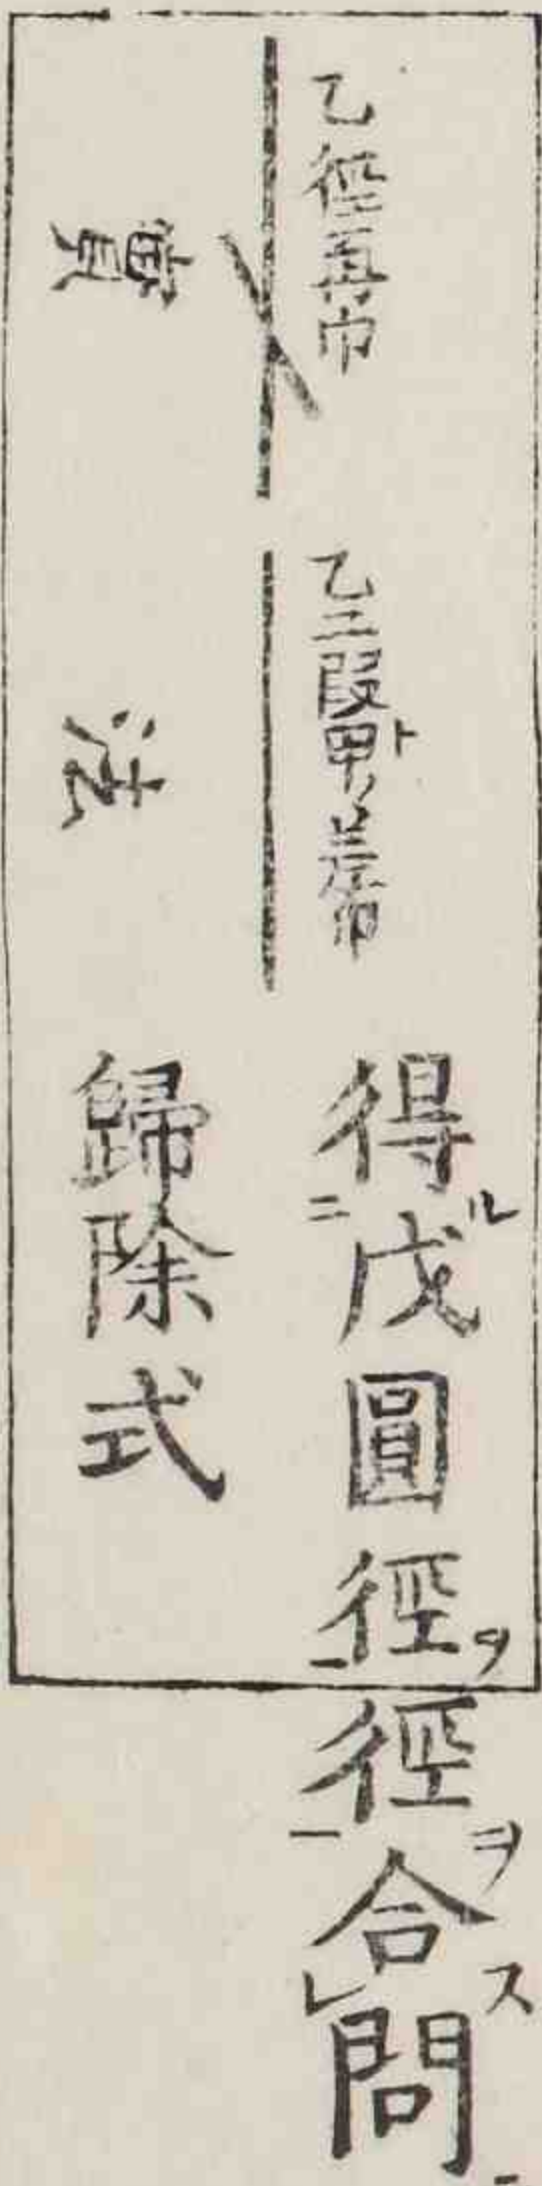 乙徑再巾
乙二段甲ト差巾
得ル二戊圓徑ヲ一徑ヲ一合スレ問
實
法
歸除式